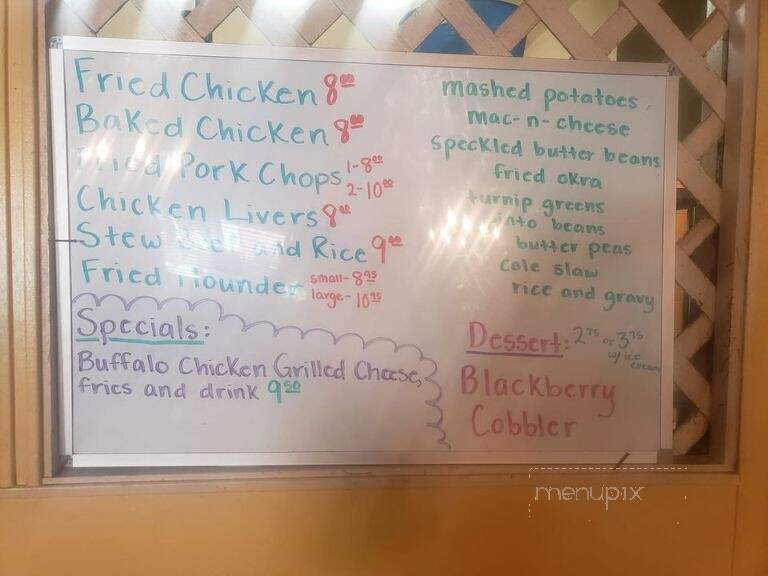 Fried Chicken 8⁰⁰
Baked Chicken 8⁰⁰
Fried Pork Chops 1-8⁰⁰
2-10⁰⁰
Chicken Livers 8⁰⁰
Stew Beef and Rice 9⁰⁰
Fried Flounder small-8⁹⁵
large-10⁹⁵
Specials:
Buffalo Chicken Grilled Cheese,
fries and drink 9⁵⁰
mashed potatoes
mac-n-cheese
speckled butter beans
fried okra
turnip greens
pinto beans
butter peas
cole slaw
rice and gravy
Dessert: 2⁷⁵ or 3⁷⁵
w/ ice
cream
Blackberry
Cobbler
menupix